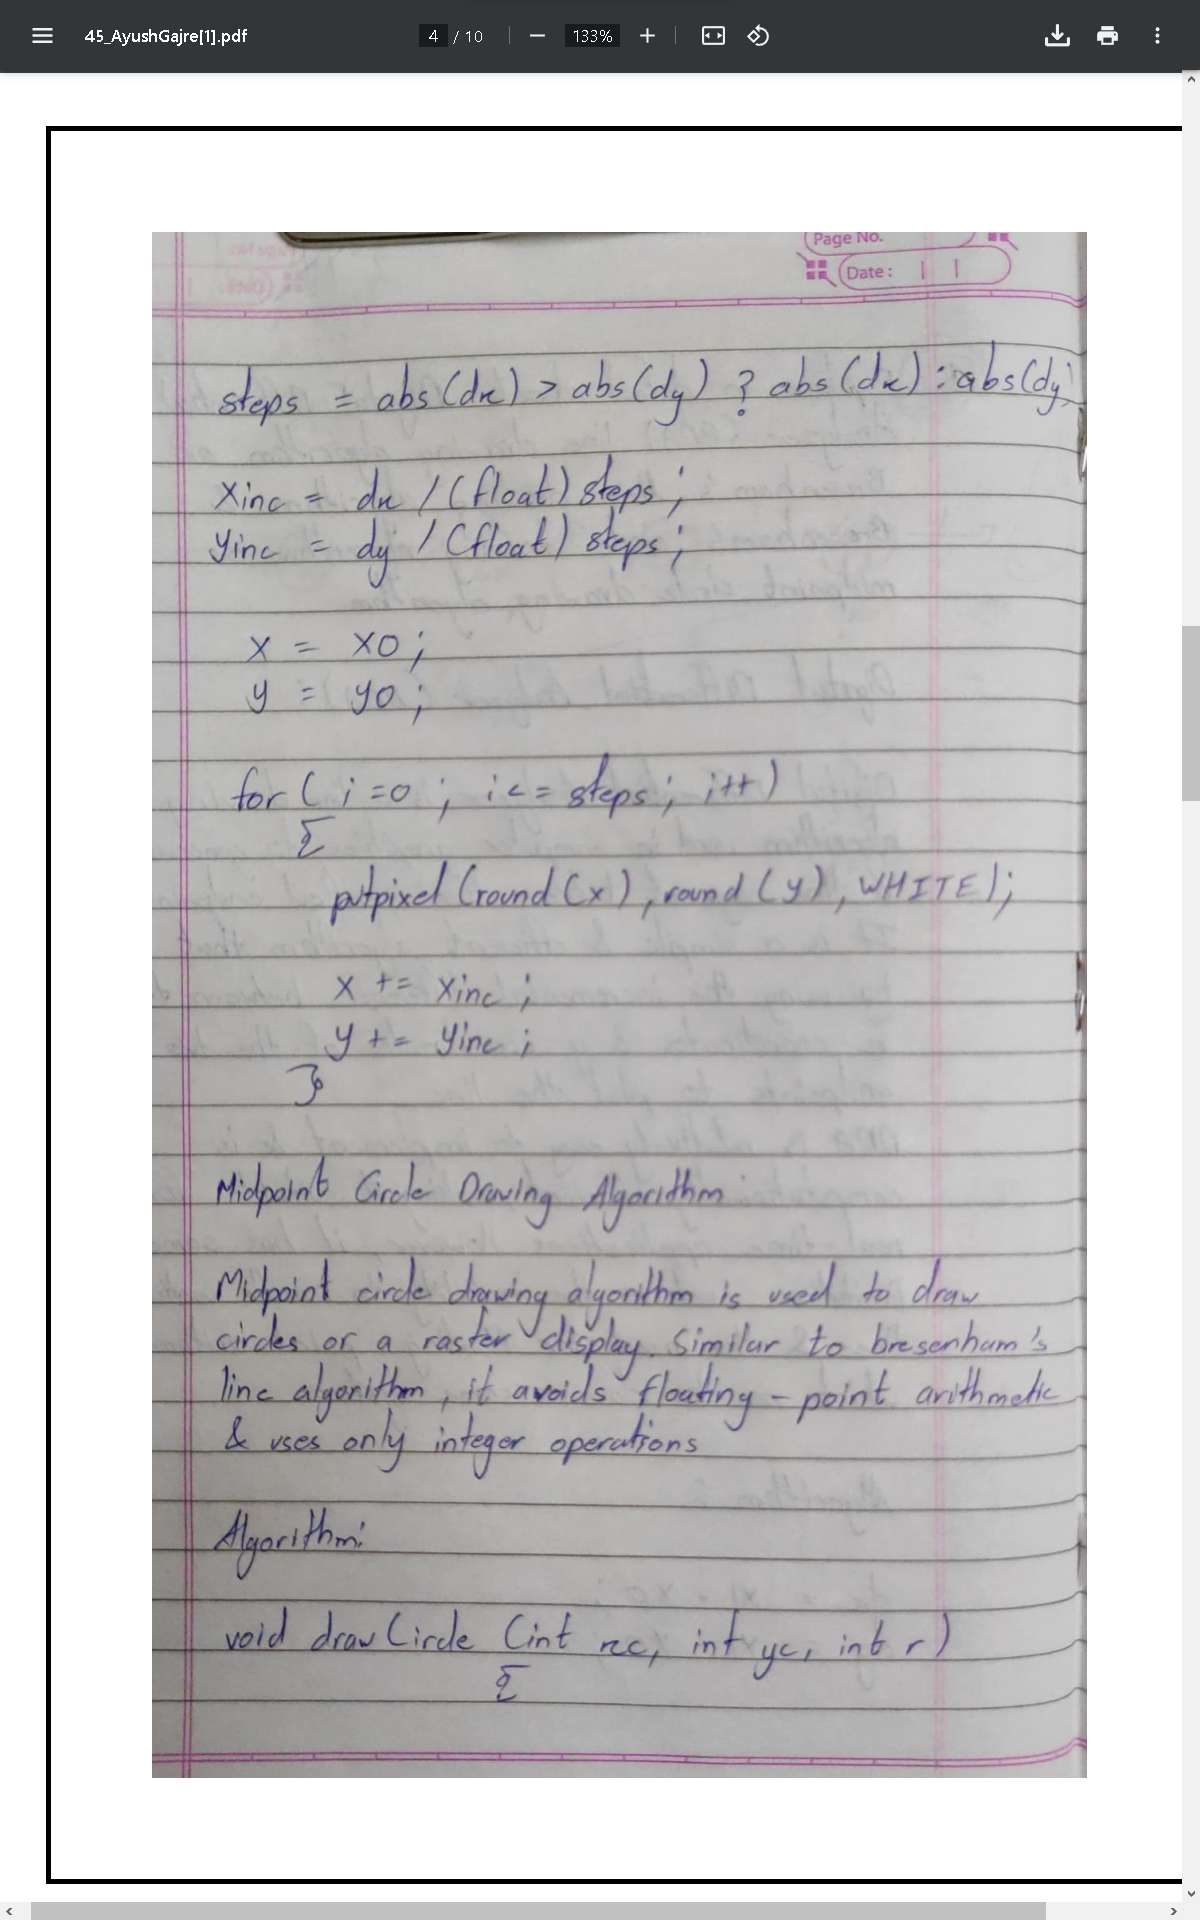 45_AyushGajre[1].pdf
4 / 10
133%
Page No.
Date :
steps = abs(dx) > abs(dy) ? abs(dx) : abs(dy)
xinc = dx / (float) steps ;
yinc = dy / (float) steps ;
x = x0 ;
y = y0 ;
for ( i=0 ; i<= steps ; i++)
{
putpixel (round (x) , round (y) , WHITE) ;
x += xinc ;
y += yinc ;
}
Midpoint Circle Drawing Algorithm
Midpoint circle drawing algorithm is used to draw
circles or a raster display. Similar to bresenham's
line algorithm, it avoids floating - point arithmetic
& uses only integer operations
Algorithm:
void draw Circle (int xc, int yc, int r)
{